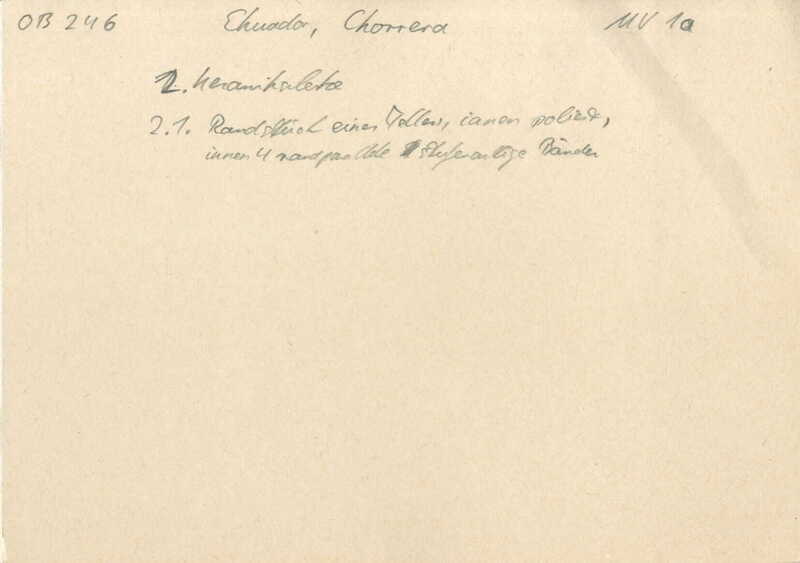 OB 246 Ekuador, Chorrera MV 1a
2. Keramikscherbe
2.1. Randstück eines Tellers, innen poliert,
innen 4 randparallele stufenartige Bänder